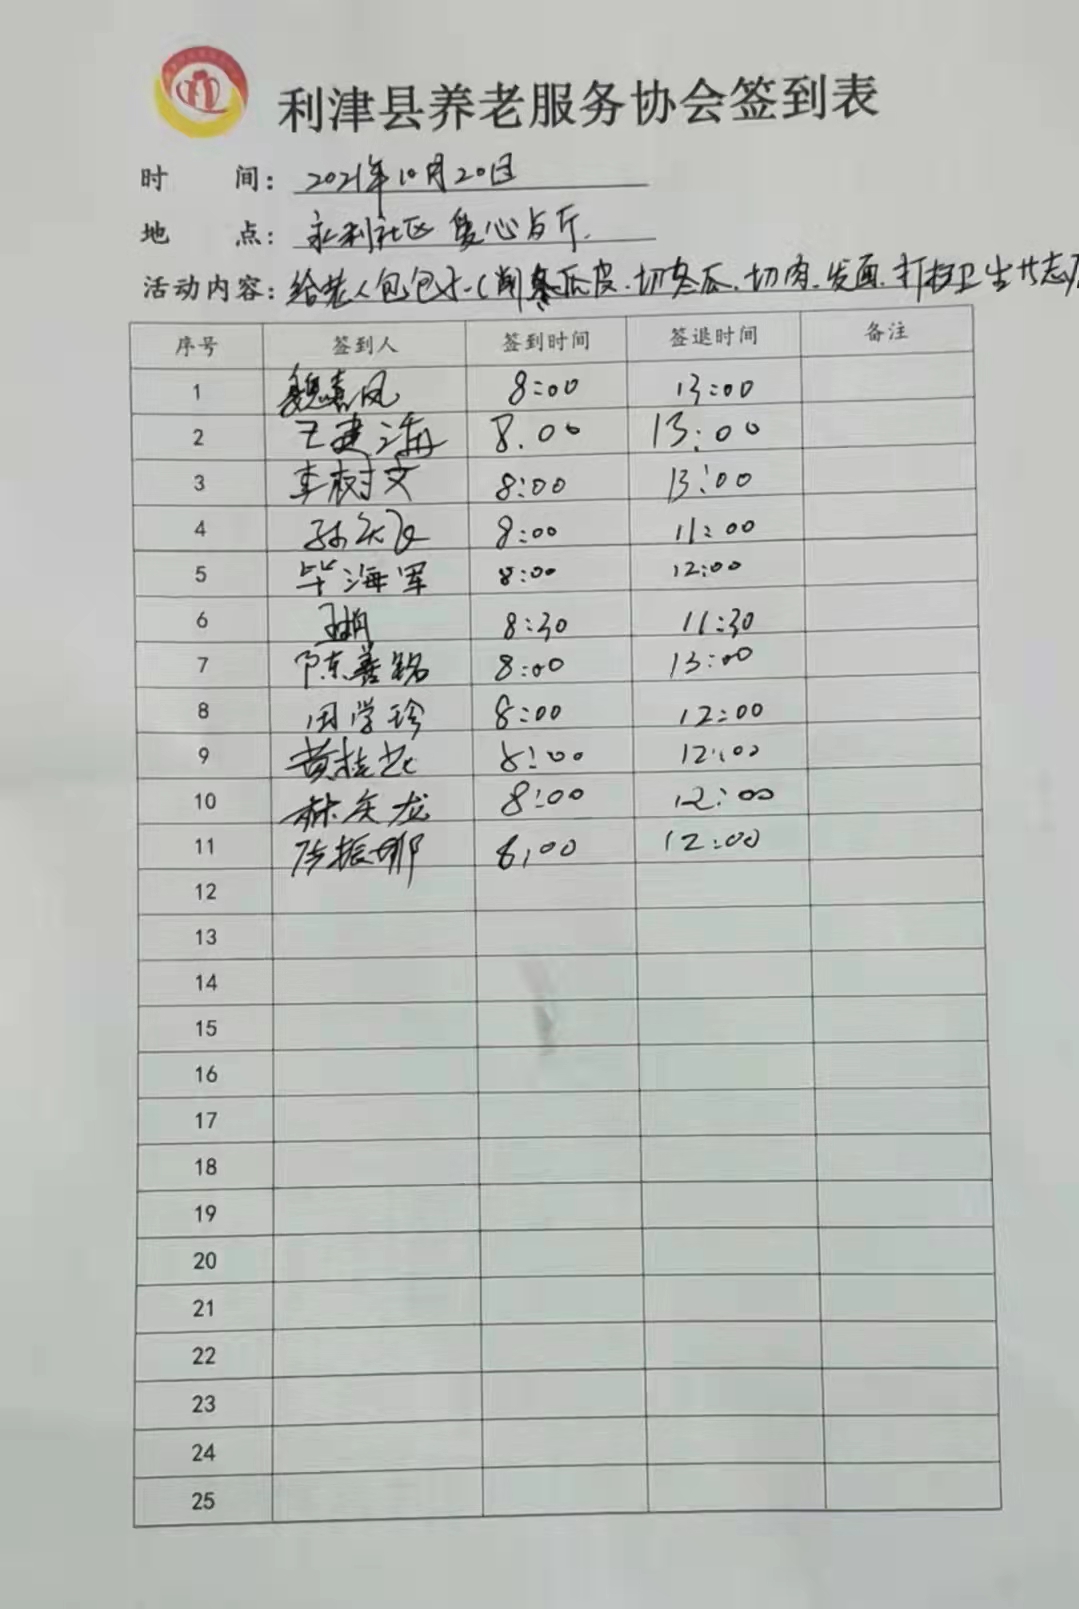 利津县养老服务协会签到表
时 间: 2021年10月20日
地 点: 永利社区 爱心与厅.
活动内容: 给老人包包子(削冬瓜皮.切冬瓜.切肉.发面.打扫卫生共志
序号 签到人 签到时间 签退时间 备注
1 魏嘉凤 8:00 13:00
2 王建海 8.00 13:00
3 李树文 8:00 13:00
4 8:00 11:00
5 毕海军 8:00 12:00
6 8:30 11:30
7 陈善铭 8:00 13:00
8 田学珍 8:00 12:00
9 黄桂花 8:00 12:00
10 林矢龙 8:00 12:00
11 陈振娜 8:00 12:00
12
13
14
15
16
17
18
19
20
21
22
23
24
25